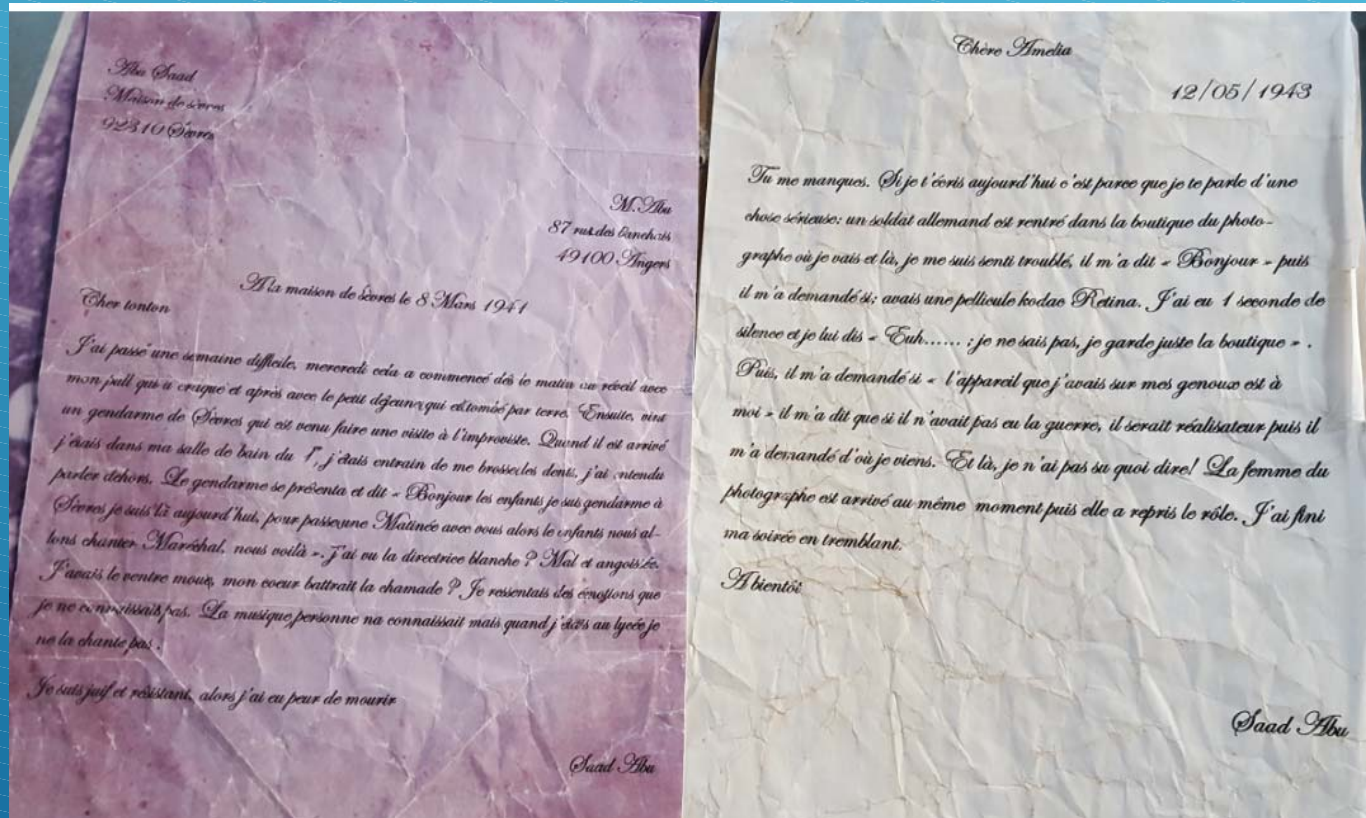 Abu Saad
Maison de sèvres
92310 Sèvres
M. Abu
87 rue des
49100 Angers
A la maison de Sèvres le 8 Mars 1941
Cher tonton
J'ai passé une semaine difficile, mercredi cela a commencé dès le matin au réveil avec
mon pull qui a craqué et après avec le petit déjeuner qui est tombé par terre. Ensuite, vint
un gendarme de Sèvres qui est venu faire une visite à l'improviste. Quand il est arrivé
j'étais dans ma salle de bain du 1er, j'étais entrain de me brosser les dents, j'ai entendu
parler dehors. Le gendarme se présenta et dit « Bonjour les enfants je suis gendarme à
Sèvres je suis là aujourd'hui, pour passer une Matinée avec vous alors le enfants nous al-
lons chanter Maréchal, nous voilà ». j'ai vu la directrice blanche ? Mal et angoissée.
J'avais le ventre moue, mon coeur battrait la chamade ? Je ressentais des émotions que
je ne connaissais pas. La musique personne na connaissait mais quand j'étais au lycée je
ne la chante pas .
Je suis juif et résistant, alors j'ai eu peur de mourir
Saad Abu
Chère Amelia
12/05/1943
Tu me manques. Si je t'écris aujourd'hui c'est parce que je te parle d'une
chose sérieuse: un soldat allemand est rentré dans la boutique du photo-
graphe où je vais et là, je me suis senti troublé, il m'a dit « Bonjour » puis
il m'a demandé si; avais une pellicule kodac Retina. J'ai eu 1 seconde de
silence et je lui dis « Euh...... ; je ne sais pas, je garde juste la boutique » .
Puis, il m'a demandé si « l'appareil que j'avais sur mes genoux est à
moi » il m'a dit que si il n'avait pas eu la guerre, il serait réalisateur puis il
m'a demandé d'où je viens. Et là, je n'ai pas su quoi dire! La femme du
photographe est arrivé au même moment puis elle a repris le rôle. J'ai fini
ma soirée en tremblant.
A bientôt
Saad Abu